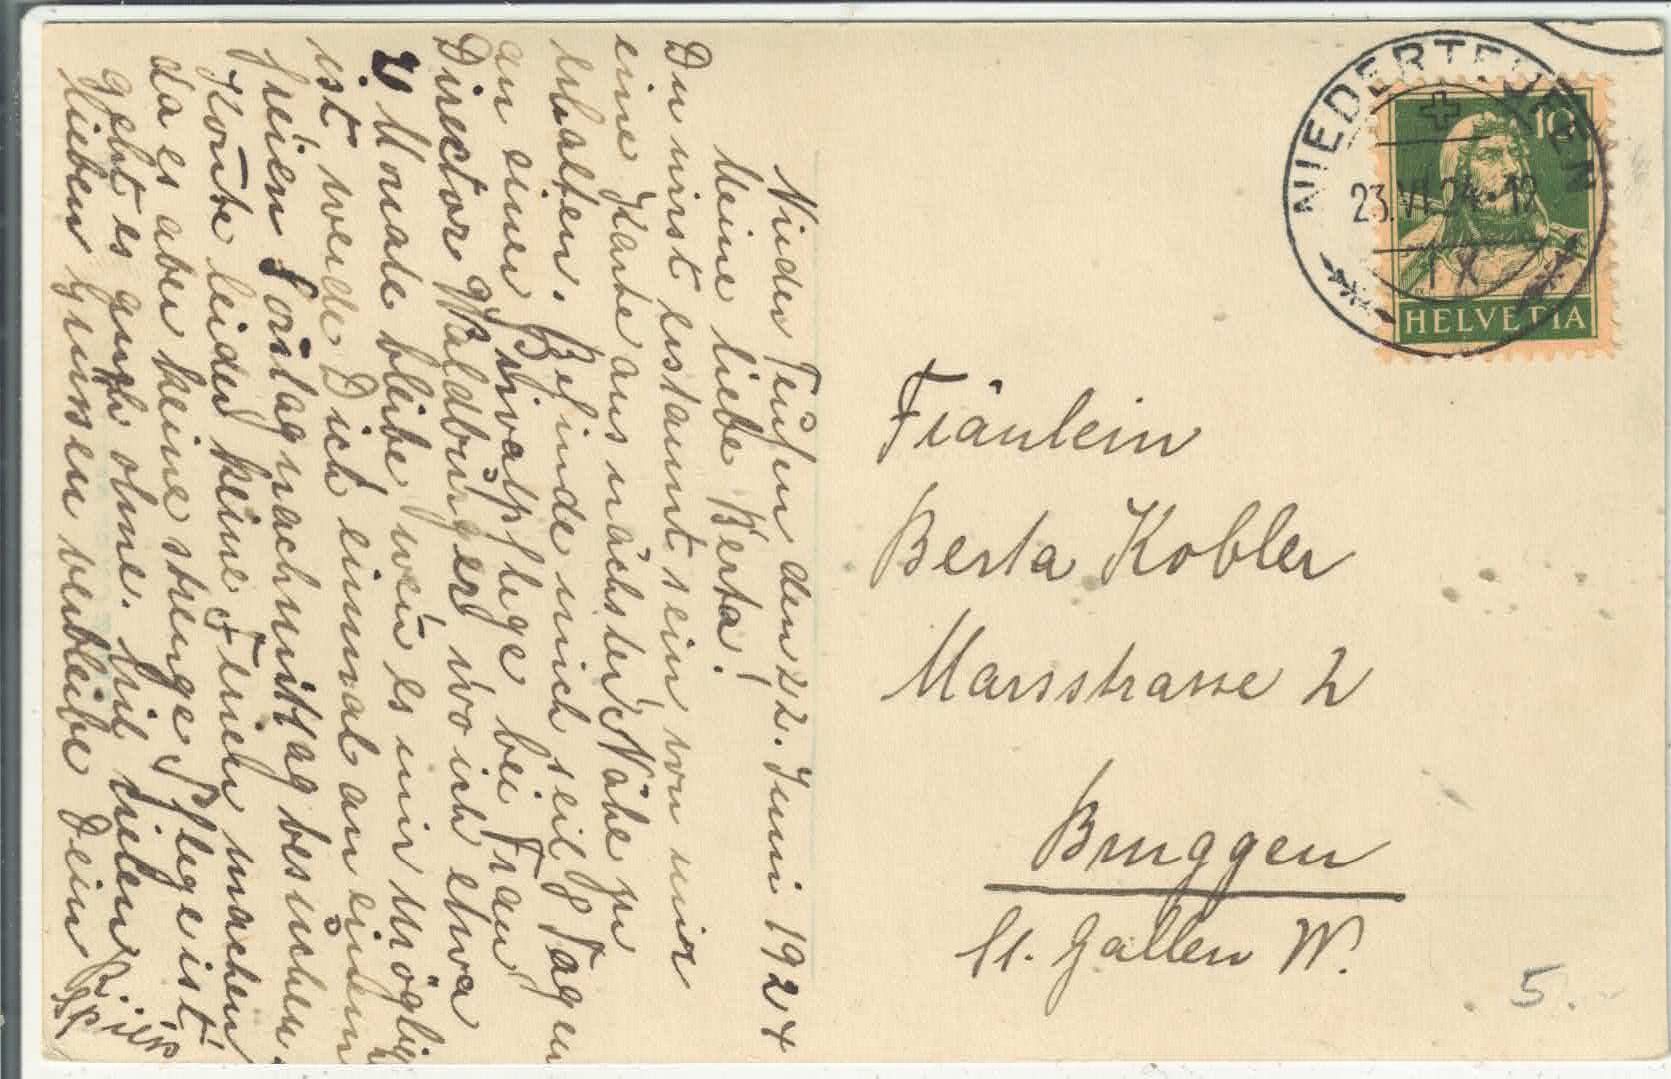 Nieder Teufen den 22. Juni 1924
Meine liebe Berta!
Du wirst erstaunt sein, von mir
eine Karte aus nächster Nähe zu
erhalten. Befinde mich seit 8 Tagen
an einer Privatpflege bei Frau
Director Waldburger wo ich etwa
2 Monate bleibe, wen es mir möglich
ist werde Dich einmal an einem
freien Sontagnachmittag besuchen.
Konte leider keine Ferien machen
da es aber keine strenge Pflege ist
geht es auch ohne. Mit vielen
lieben Grüssen verbleibe Dein
Fräulein
Berta Kobler
Marsstrasse 2
Bruggen
St. Gallen W.
NIEDERTEUFEN
23.VI.24-12
IX
10
HELVETIA
5.-